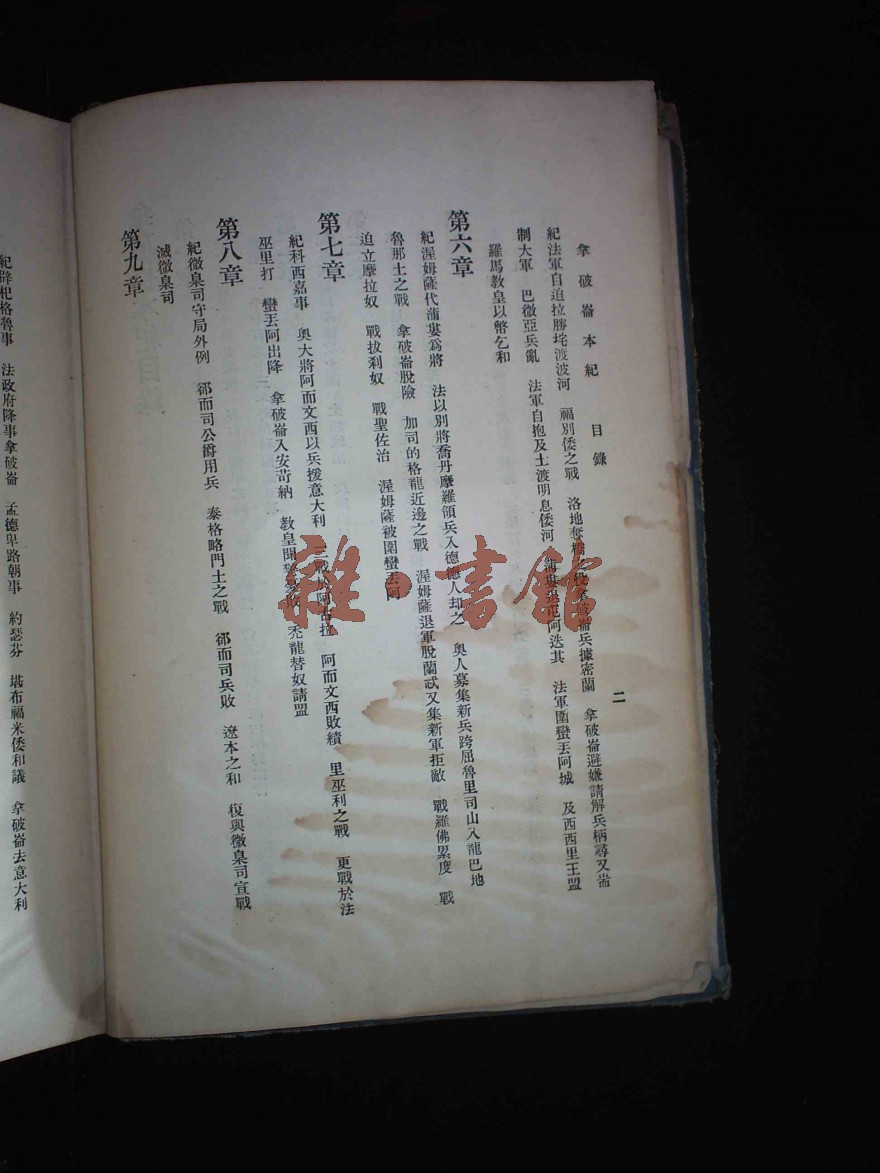 拿破崙本紀 目錄
二
紀法軍自迫拉勝垞渡波河 福別倭之戰 洛地奪橋 拿破崙兵據密蘭 拿破崙避嫌請解兵柄尋又耑
制大軍 巴微亞兵亂 法軍自抱及土渡明息倭河 蒲婁退屯阿迭其 法軍圍蠻丟阿城 及西西里王盟
羅馬教皇以幣乞和
第六章
紀渥姆薩代蒲婁爲將 法以別將喬丹摩羅領兵入德德人却之 奧人募集新兵跨屈魯里司山入龍巴地
魯那土之戰 拿破崙脫險 加司的格龍近邊之戰 渥姆薩退軍脫蘭忒又集新軍拒敵 戰羅佛累度 戰
迫立摩拉奴 戰拔刹奴 戰聖佐治 渥姆薩被圍蠻丟阿
第七章
紀科西嘉事 奧大將阿而文西以兵援意大利 三戰於阿古拉 阿而文西敗績 里巫利之戰 更戰於法
巫里打 蠻丟阿出降 拿破崙入安苛納 教皇聞警 禿龍替奴請盟
第八章
紀微臬司守局外例 郤而司公爵用兵 泰格略門土之戰 郤而司兵敗 遼本之和 復與微臬司宣戰
滅微臬司
第九章
紀辟杞格魯事 法政府降事拿破崙 孟德卑路朝事 約瑟芬 堪布福米倭和議 拿破崙去意大利
雜書館